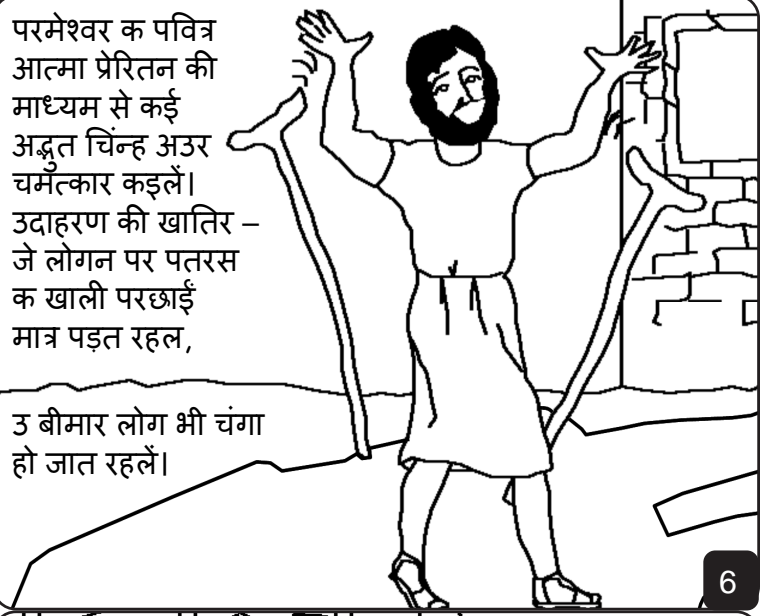 परमेश्वर क पवित्र
आत्मा प्रेरितन की
माध्यम से कई
अद्भुत चिंन्ह अउर
चमत्कार कइलें।
उदाहरण की खातिर –
जे लोगन पर पतरस
क खाली परछाईं
मात्र पड़त रहल,
उ बीमार लोग भी चंगा
हो जात रहलें।
6